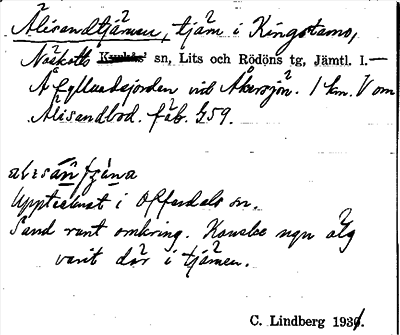 Älisandtjärnen, tjärn i Kingstamo,
Näskotts Kyrkås' sn, Lits och Rödöns tg, Jämtl. l.—
Å Fyllnadsjorden vid Åkersjön. 1 km. V om
Älisandbod. fäb. G59.
Upptecknat i Offerdals sn.
Sand runt omkring. Kanske ngn älg
varit där i tjärnen.
C. Lindberg 1934.